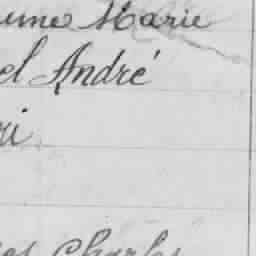 Marie
el André
ri
es Charles